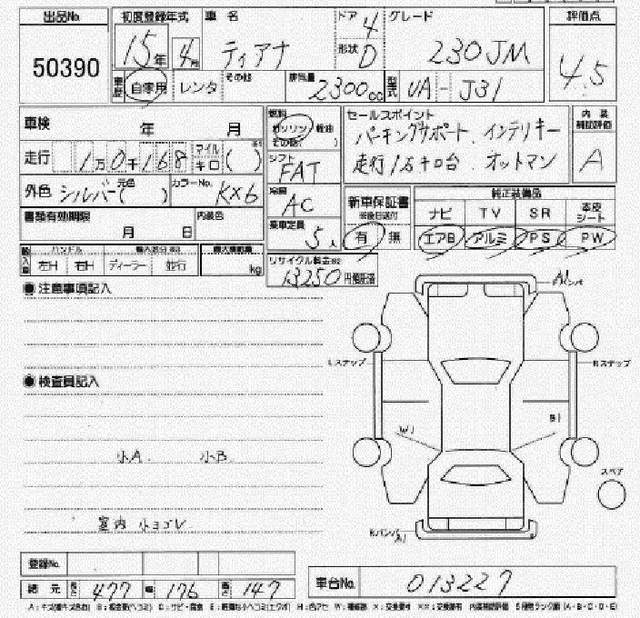 出品No. 初度登録年式 車名 ドア 4 グレード 評価点
50390 15年 4月 ティアナ 形状 D 230JM 4.5
車歴 自家用 レンタ その他 排気量 2300cc 型式 UA-J31
車検 年 月 燃料 ガソリン 軽油 その他( ) セールスポイント 内装補助評価
パーキングサポート、インテリキー
走行 1万0千168 マイル キロ ( ) シフト FAT 走行1万キロ台 オットマン A
外色 シルバー 元色( ) カラーNo. KX6 冷房 AC 新車保証書 純正装備品
書類有効期限 月 日 内装色 乗車定員 5人 有 無 ナビ TV SR 本皮シート
エアB アルミ PS PW
ハンドル 最大積載量 リサイクル料金
左H 右H ディーラー 並行 kg 13250円
●注意事項記入
A1 バンパ
Lステップ Rステップ
●検査員記入
W1 B1
小A 小B
スペア
室内 小ヨゴレ
Rバンパ A1
登録No.
諸元 長さ 477 幅 176 高さ 147 車台No. 013227